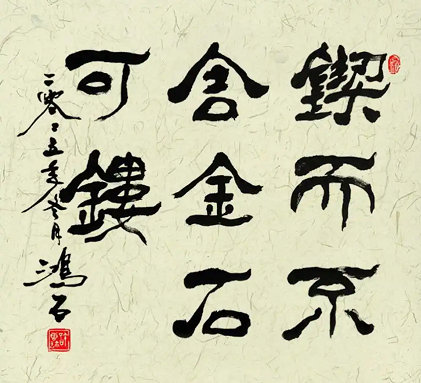 鍥而不
舍金石
可鏤
二零五年月鴻石